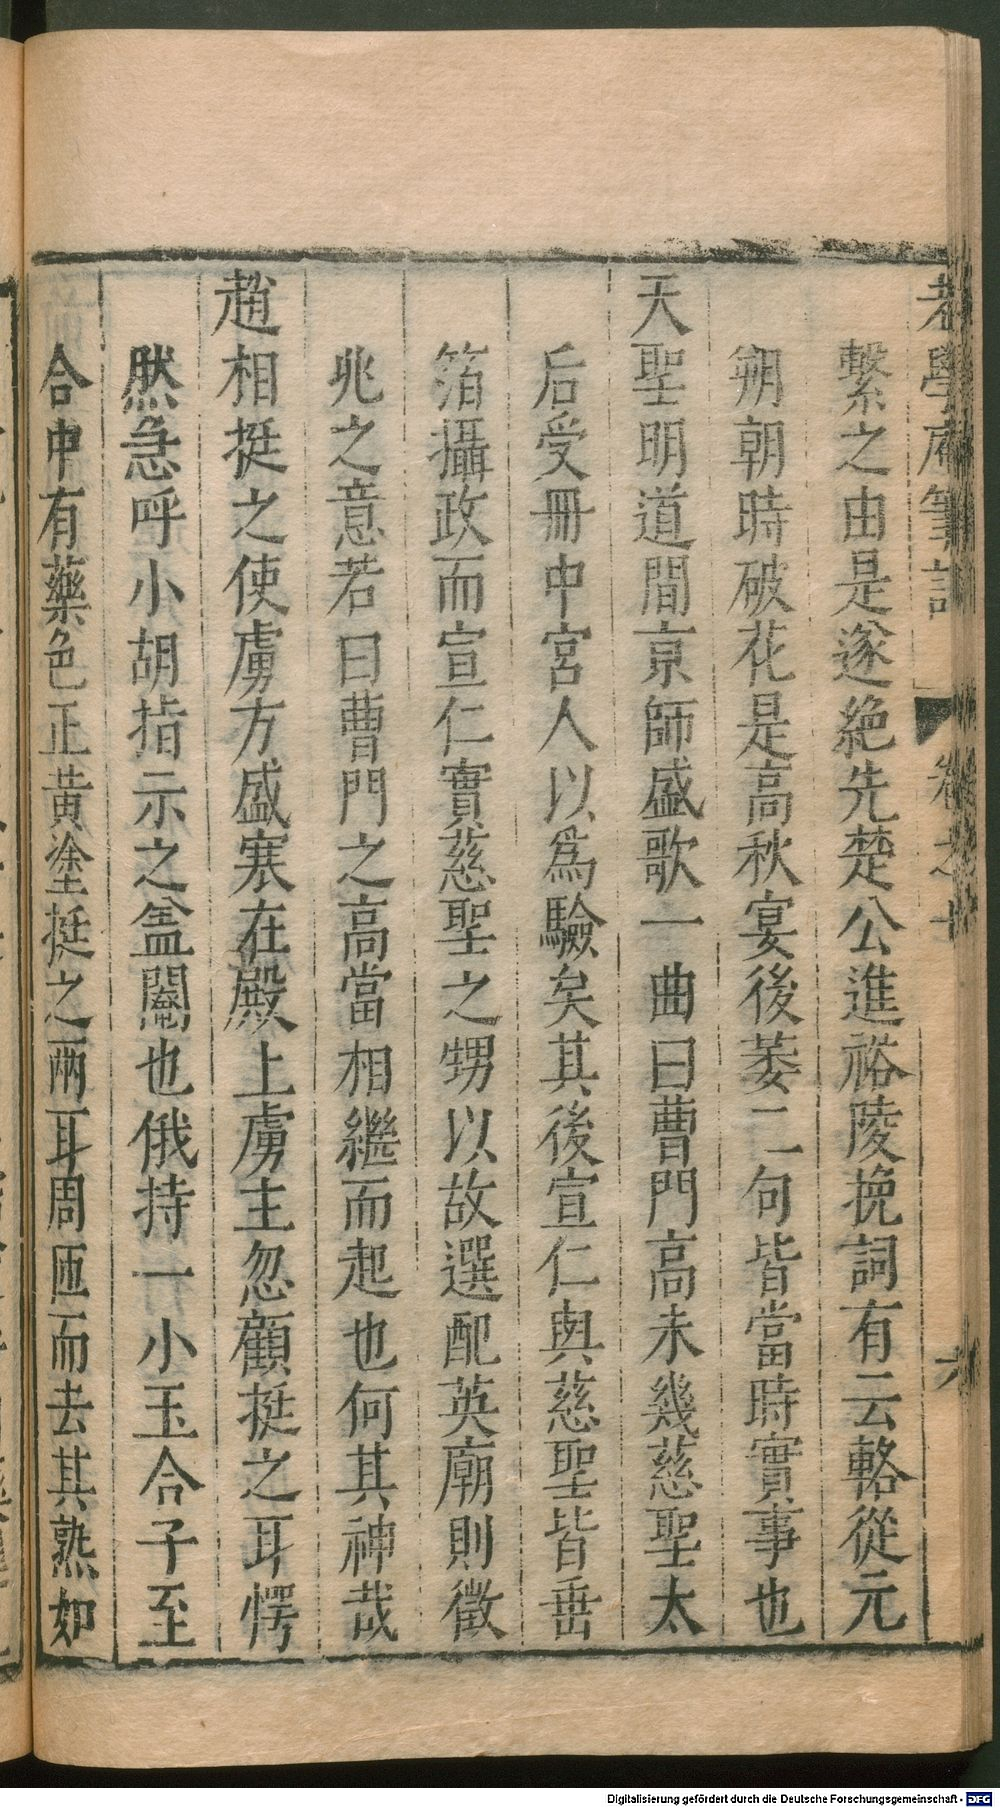 老學庵筆記 卷之十 六
繫之由是遂絶先楚公進裕陵挽詞有云輅從元
朔朝時破花是高秋宴後萎二句皆當時實事也
天聖明道間京師盛歌一曲曰曹門高未幾慈聖太
后受冊中宮人以爲驗矣其後宣仁與慈聖皆垂
箔攝政而宣仁實慈聖之甥以故選配英廟則徵
兆之意若曰曹門之高當相繼而起也何其神哉
趙相挺之使虜方盛寒在殿上虜主忽顧挺之耳愕
然急呼小胡指示之盖閹也俄持一小玉合子至
合中有藥色正黃塗挺之兩耳周匝而去其熱如
Digitalisierung gefördert durch die Deutsche Forschungsgemeinschaft - DFG